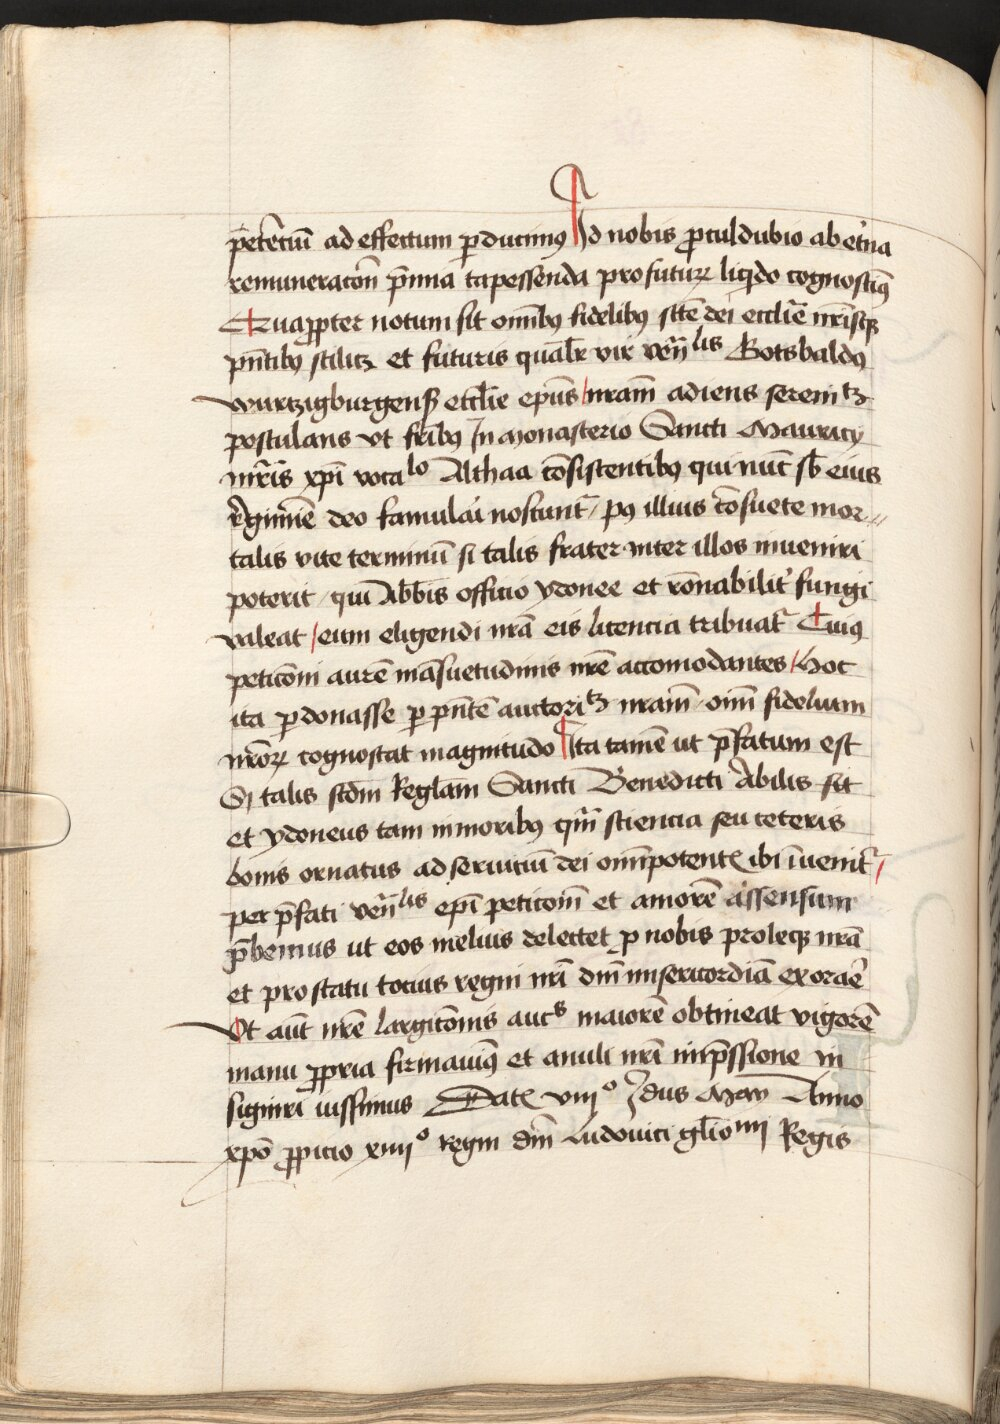 petẽciũ ad effectum ꝑducimꝰ Id nobis ꝓculdubio ab et̾na
remuneracõn p̃mia capessenda profuturꝝ liq̇do cognoscimꝰ
Quaꝓpter notum sit om̃ibꝰ fidelibꝰ sc̃te dei eccl̃ie nr̃isqꝫ
pñtibꝰ scilicꝫ et futuris qual̃r vir veñlis Gotsbaldꝰ
wurtzigburgenß eccl̃ie ep̃us / nr̃am adiens serenitꝫ
postulans vt fr̃ibꝰ In monasterio Sancti Mauricy
mr̃is xp̃i vocalo Althaa cõsistentibꝰ qui nũc sb̃ eius
r̾gimĩe deo famulai noscunt᷑ / pꝰ illius cõsuete mor⸗
talis vite terminũ si talis frater inter illos inueniri
poterit / qui Abb̃is officio ydonee et rõnabilit̾ fungi
valeat / eum eligendi nr̃a eis licencia tribuat᷑ Cuiꝰ
peticõni aurẽ mãsuetudinis nr̃e accomodantes / Hoc
ita ꝑdonasse ꝑ pñtẽ auctoritꝫ nr̃am / oĩm fidelium
nr̃orꝝ cognoscat magnitudo Ita tamẽ ut p̃fatum est
Si talis scd̃m Regl̃am Sancti Benedicti Abilis sit
et ydoneus tam inmoribꝰ qm̃ sciencia seu ceteris
bonis ornatus ad seruiciũ dei om̃ipotentꝭ ibi ĩuenit᷑ /
per p̃fati veñlis ep̃i peticom̃ et amorẽ assensum
p̃bemus ut eos melius delectet ꝓ nobis proleqꝫ nr̃a
et pro statu tocius regni nr̃i dñi misericordiã exorar̾e
Vt aũt nr̃e largicõnis aucs maiorẽ obtineat vigorẽ
manu ꝓpria firmauimꝰ et anuli nr̃i imp̃ssione in
signiri iussimus Datꝭ viijo Idus May Anno
xp̃o ꝓpicio xiiijo regni dñi Ludouici gl̃iomi Regis